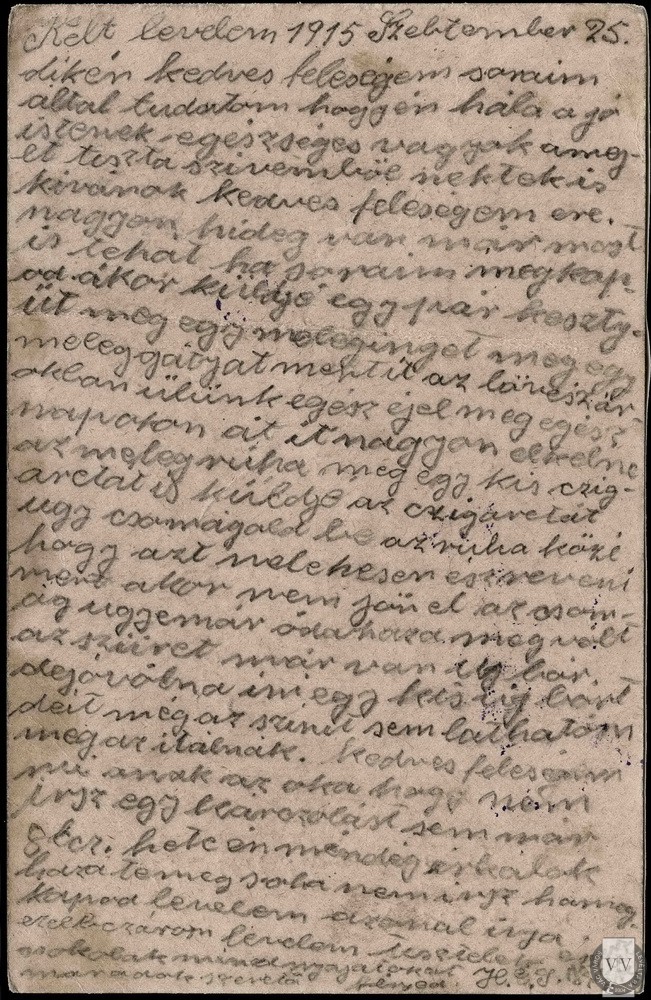 Kelt levelem 1915 Szebtember 25.
dikén kedves feleségem soraim
által tudatom hogyén hála a jó
istenek egészséges vagyok ameg-
et tiszta szivemböl nektek is
kivánok kedves feleségem ere.
nagyon hideg van már most
is tehát ha soraim megkap-
od ákor küldjé egy pár keszty-
üt meg egy meleginget meg egy
meleg gátyát mert it az lövészár
okban ülünk egész éjel meg egész
napokon át it nagyon elkelne
az meleg ruha meg egy kis czig-
aretát is küldje az czigaretát
ugy csomagold be az ruha közé
hogy azt nelehesen észreveni
mert akor nem jön el az csom-
ág ugyemár ódahaza meg volt
az szüret már van uj bor.
dejóvólna ini egy kis uj bort
deit még az szinit sem láthatom
meg az itálnak. kedves feleségem
mi anak az oka hogy nem
irsz egy kárczolást sem már
hete én mendég irkálok
haza temeg soha nem irsz hameg.
kapod levelem azonal irjá
ezelbezárom levelem tisztelek és
csokolak minnyájatokat
maradok szeretö férjed